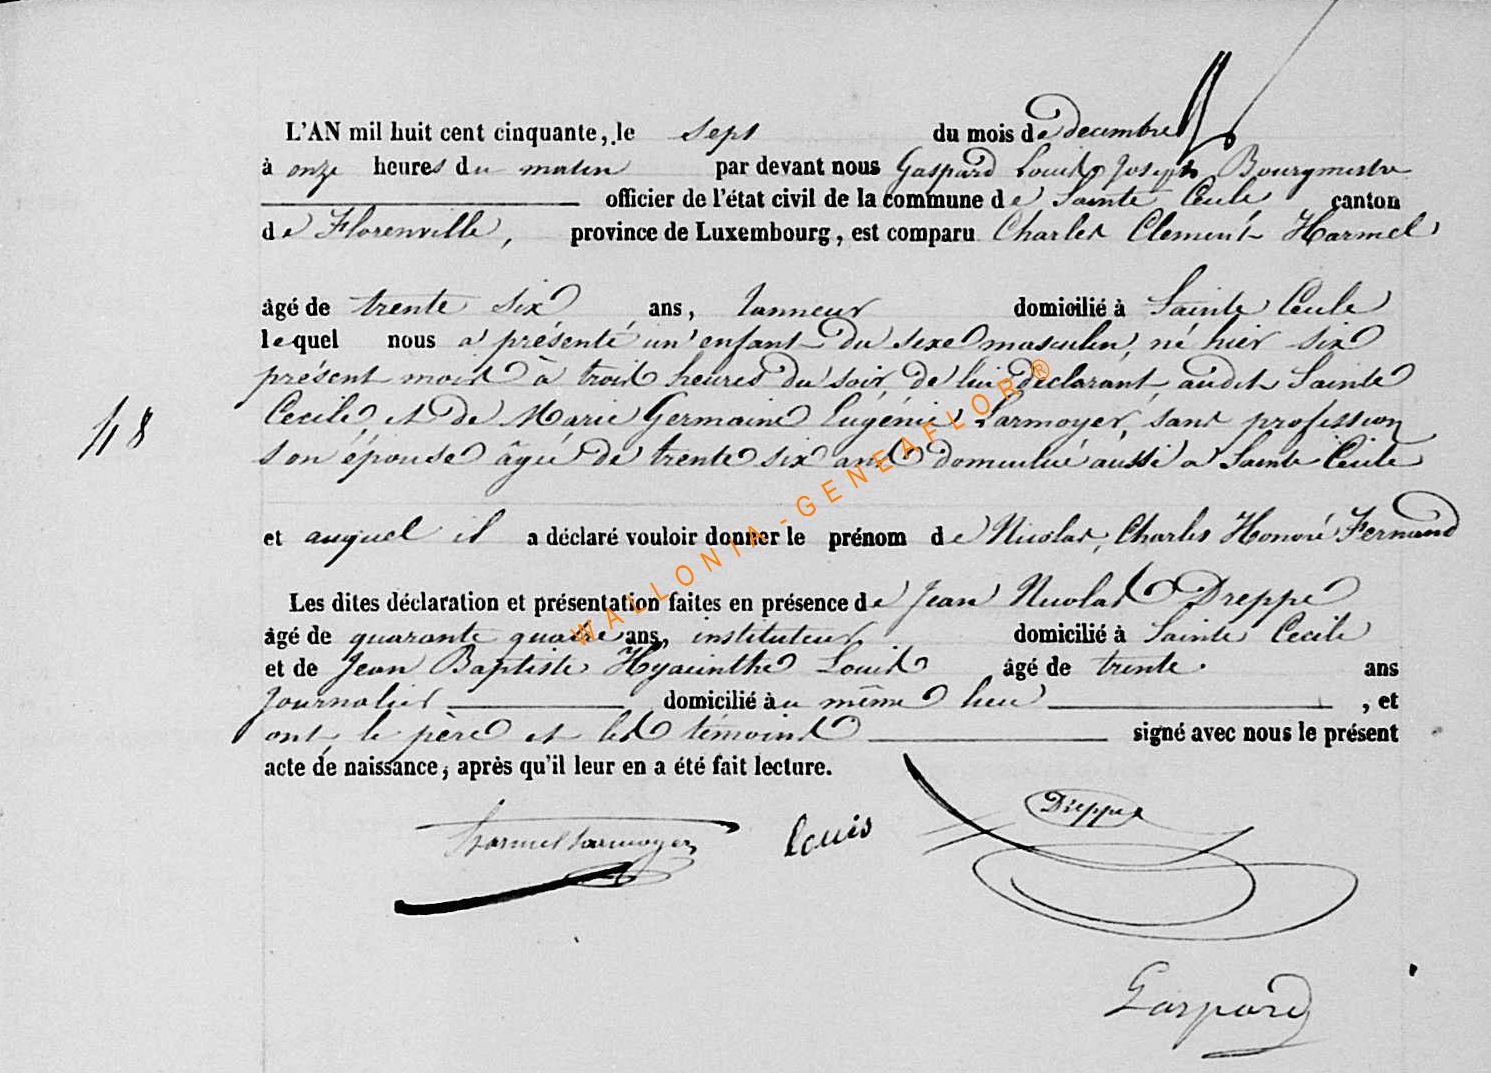 L'AN mil huit cent cinquante, le sept du mois de decembre
à onze heures du matin par devant nous Gaspard Louis Joseph Bourgmestre
officier de l'état civil de la commune de Sainte Cecile canton
de Florenville, province de Luxembourg, est comparu Charles Clement Harmel
âgé de trente six ans, tanneur domicilié à Sainte Cecile
lequel nous a présenté un enfant du sexe masculin, né hier six
présent mois à trois heures du soir, de lui déclarant, audit Sainte
Cecile, et de Marie Germaine Eugénie Larmoyer, sans profession
48
son épouse âgée de trente six ans domiciliée aussi à Sainte Cécile
et auquel il a déclaré vouloir donner le prénom de Nicolas, Charles Honoré Fernand
Les dites déclaration et présentation faites en présence de Jean Nicolas Dreppe
âgé de quarante quatre ans, instituteur domicilié à Sainte Cecile
et de Jean Baptiste Hyacinthe Louis âgé de trente ans
Journalier domicilié au même lieu , et
ont le père et les témoins signé avec nous le présent
acte de naissance, après qu'il leur en a été fait lecture.
Harmel Larmoyer Louis Dreppe
Gaspard
WALLONIA-GENEAFLOR®